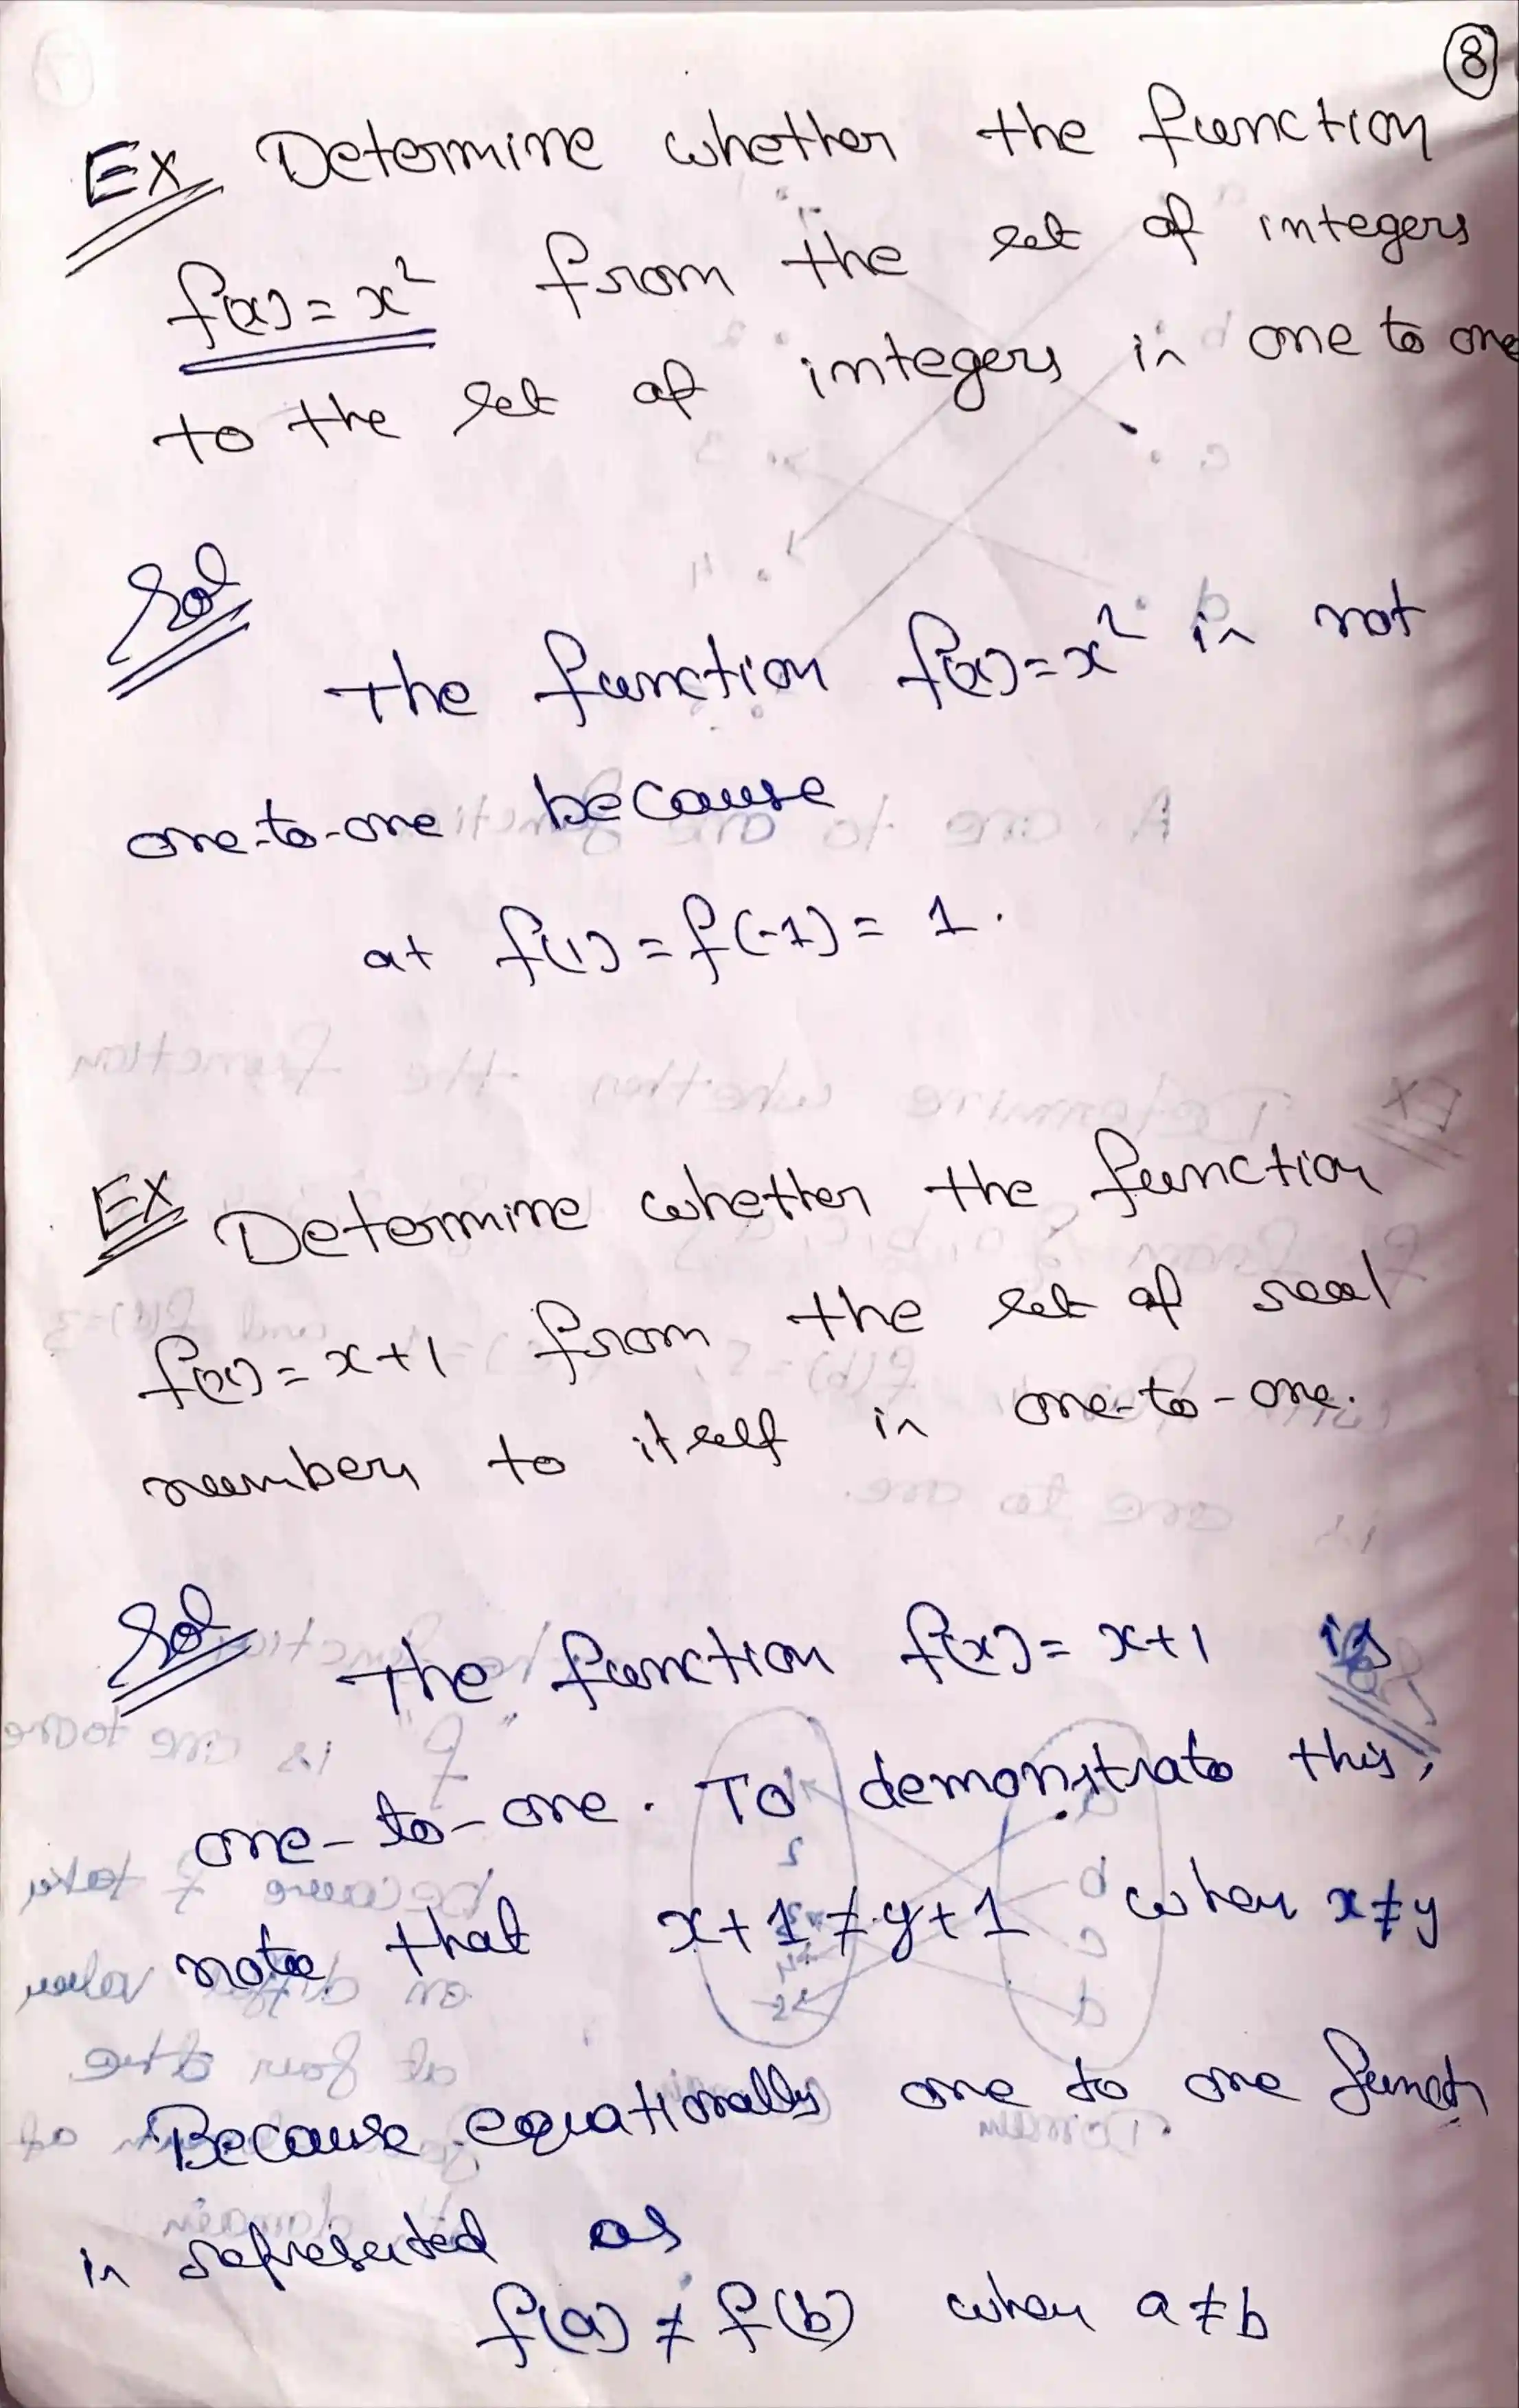 8
Ex Determine whether the function
f(x) = x² from the set of integers
to the set of integers is one to one
Sol
The function f(x) = x² is not
one-to-one because
at f(1) = f(-1) = 1.
Ex Determine whether the function
f(x) = x+1 from the set of real
numbers to itself is one-to-one.
Sol The function f(x) = x+1 is
one-to-one. To demonstrate this,
note that x+1 ≠ y+1 when x≠y
Because equationally one to one
is represented as
f(a) ≠ f(b) when a≠b